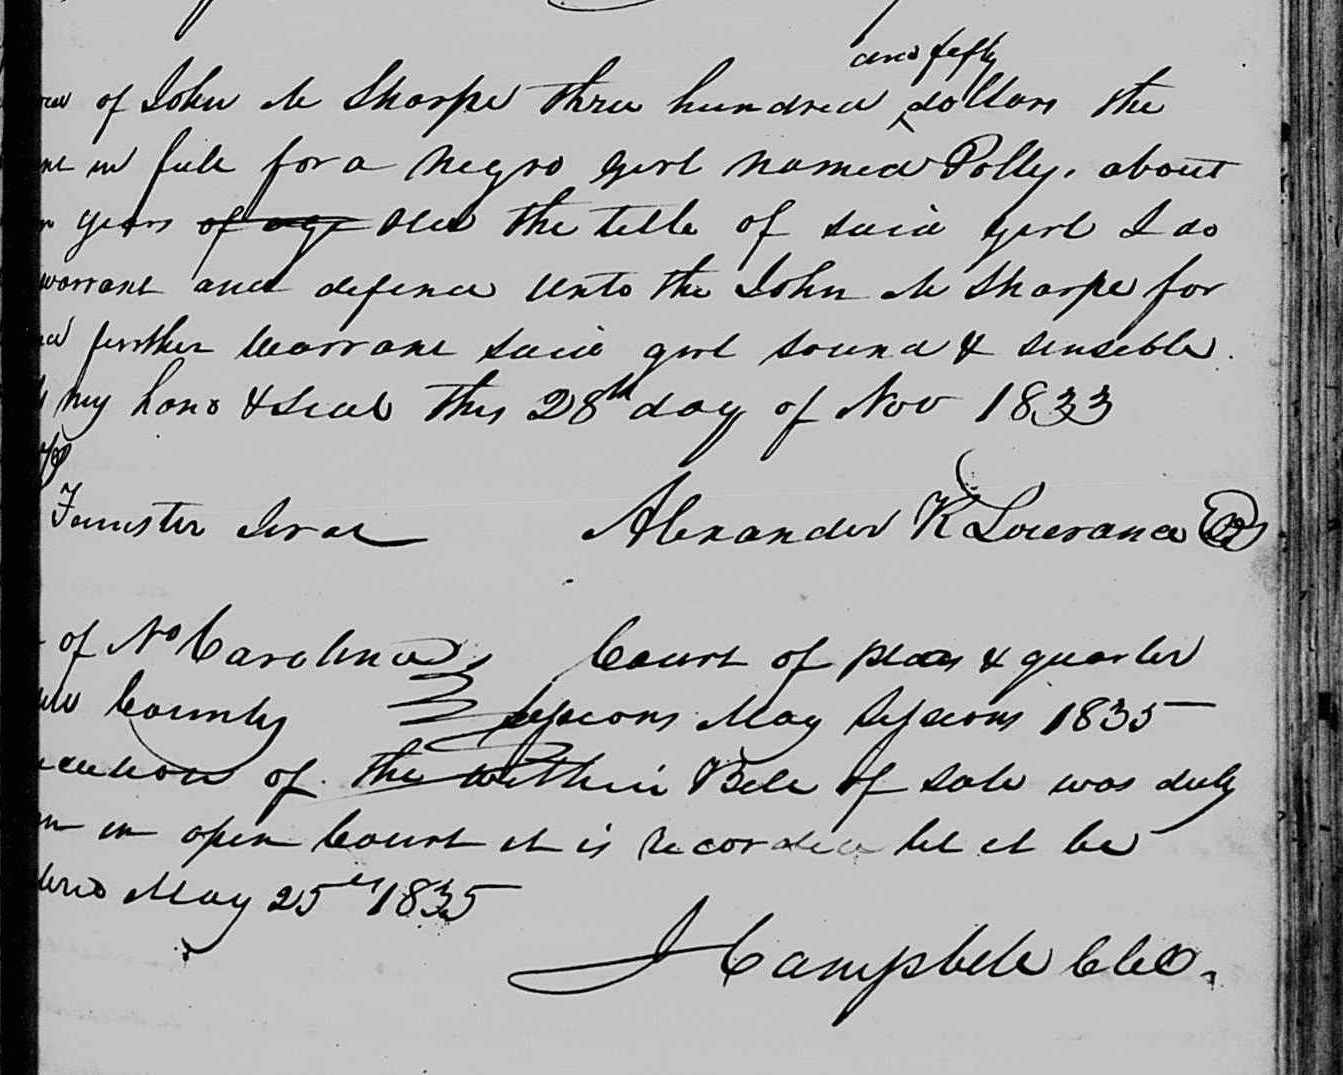 and fifty
of John M Sharpe three hundred ^ dollars the
in full for a negro girl named Polly. about
years of age old the title of said girl I do
warrant and defend unto the John M Sharpe for
further warrant said girl sound & sensible.
my hand & seal this 28th day of Nov 1833
Alexander K Lowrance
of No Carolina Court of pleas & quarter
County Sessions May Sessions 1835
of the within Bill of sale was duly
in open Court it is recorded let it be
May 25th 1835
J Campbell Clk.